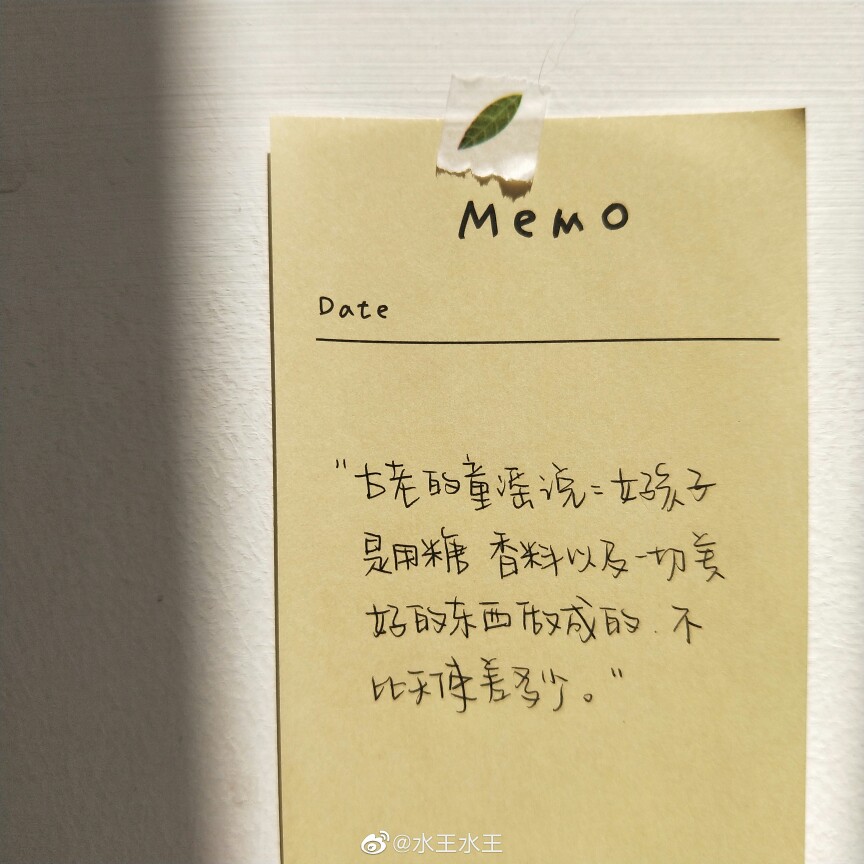 Memo
Date
“古老的童谣说：女孩子
是用糖 香料以及一切美
好的东西做成的.不
比天使差多少。”
@水王水王